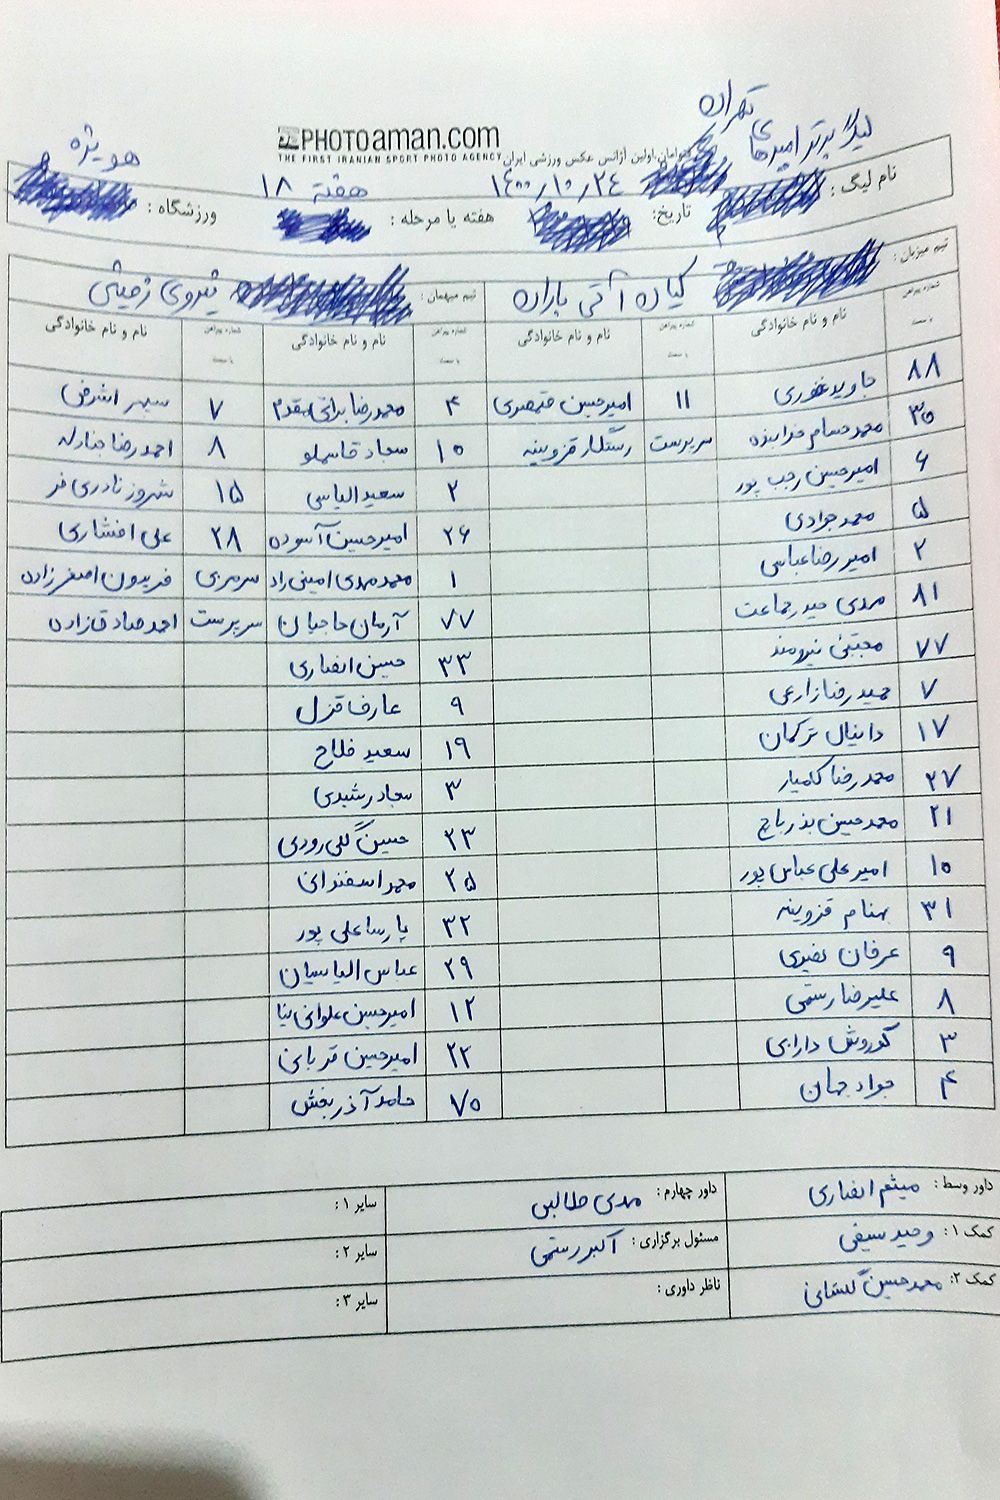 لیگ برتر امیدهای تهران
PHOTOAMAN.COM
THE FIRST IRANIAN SPORT PHOTO AGENCY
فتوامان، اولین آژانس عکس ورزشی ایران
نام لیگ :
تاریخ: ۱۴۰۰/۱۰/۲۴
هفته یا مرحله : هفته ۱۸
ورزشگاه : هویزه
تیم میزبان : کیان آتی باران
تیم میهمان : نیروی زمینی
نام و نام خانوادگی نام و نام خانوادگی نام و نام خانوادگی نام و نام خانوادگی
۸۸ جاوید غفوری ۱۱ امیرحسین قمصری ۴ محمدرضا براتی مقدم ۷ سپهر اشرفی
۳۵ محمد حسام خدابنده سرپرست رستگار قزوینه ۱۰ سجاد قاسملو ۸ احمدرضا جنادله
۶ امیرحسین رجب پور ۲ سعید الیاسی ۱۵ شهروز نادری فر
۵ محمد جوادی ۲۶ امیرحسین آسوده ۲۸ علی افشاری
۲ امیررضا عباسی ۱ محمدمهدی امینی راد سرمربی فریدون اصغرزاده
۸۱ مهدی حیدرجماعت ۷۷ آرمان حاجیان سرپرست احمد صادق زاده
۷۷ مجتبی نیرومند ۳۳ حسین انصاری
۷ حمیدرضا زارعی ۹ عارف قزل
۱۷ دانیال ترکمان ۱۹ سعید فلاح
۲۷ محمدرضا کامیار ۳ سجاد رشیدی
۲۱ محمدحسین بذرپاچ ۲۳ حسین گلی رودی
۱۰ امیرعلی عباس پور ۲۵ محمد اسفندانی
۳۱ بهنام قزوینه ۳۲ پارسا علی پور
۹ عرفان نصیری ۲۹ عباس الیاسیان
۸ علیرضا رستمی ۱۲ امیرحسین علوانی نیا
۳ کوروش دارابی ۲۲ امیرحسین قربانی
۴ جواد جهان ۷۰ حامد آذربخش
داور وسط : میثم انصاری داور چهارم : مهدی طالبی سایر ۱ :
کمک ۱ : وحید سیفی مسئول برگزاری : اکبر رستمی سایر ۲ :
کمک ۲: محمدحسین گلستانی ناظر داوری : سایر ۳ :